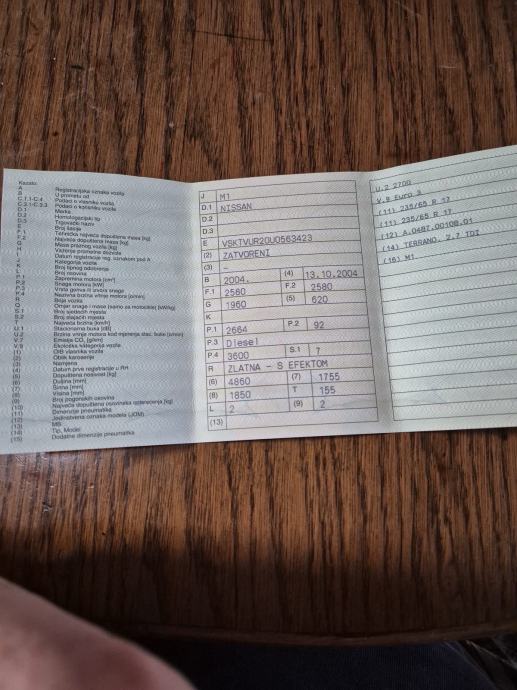 Kazalo:
A Registracijska oznaka vozila
B U prometu od
C.1.1-C.4 Podaci o vlasniku vozila
C.3.1-C.3.3 Podaci o korisniku vozila
D.1 Marka
D.2 Homologacijski tip
D.3 Trgovački naziv
E Broj šasije
F.1 Tehnička najveća dopuštena masa [kg]
F.2 Najveća dopuštena masa [kg]
G Masa praznog vozila [kg]
H Važenje prometne dozvole
I Datum registracije reg. oznakom pod A
J Kategorija vozila
K Broj tipnog odobrenja
L Broj osovina
P.1 Zapremina motora [cm³]
P.2 Snaga motora [kW]
P.3 Vrsta goriva ili izvora snage
P.4 Nazivna brzina vrtnje motora [o/min]
R Boja vozila
Q Omjer snage i mase (samo za motocikle) [kW/kg]
S.1 Broj sjedećih mjesta
S.2 Broj stajaćih mjesta
T Najveća brzina [km/h]
U.1 Stacionarna buka [dB]
U.2 Brzina vrtnje motora kod mjerenja stac. buke [o/min]
V.7 Emisija CO₂ [g/km]
V.9 Ekološka kategorija vozila
(1) OIB vlasnika vozila
(2) Oblik karoserije
(3) Namjena
(4) Datum prve registracije u RH
(5) Dopuštena nosivost [kg]
(6) Duljina [mm]
(7) Širina [mm]
(8) Visina [mm]
(9) Broj pogonskih osovina
(10) Najveće dopušteno osovinsko opterećenje [kg]
(11) Dimenzije pneumatika
(12) Jedinstvena oznaka modela (JOM)
(13) MB
(14) Tip, Model
(15) Dodatne dimenzije pneumatika
J M1
D.1 NISSAN
D.2
D.3
E VSKTVUR20U0563423
(2) ZATVORENI
(3) -
B 2004. (4) 13.10.2004
F.1 2580 F.2 2580
G 1960 (5) 620
K
P.1 2664 P.2 92
P.3 Diesel
P.4 3600 S.1 7
R ZLATNA - S EFEKTOM
(6) 4860 (7) 1755
(8) 1850 T 155
L 2 (9) 2
(13)
U.2 2700
V.9 Euro 3
(11) 235/65 R 17
(11) 235/65 R 17
(12) A.0487.00108.01
(14) TERRANO, 2.7 TDI
(16) M1